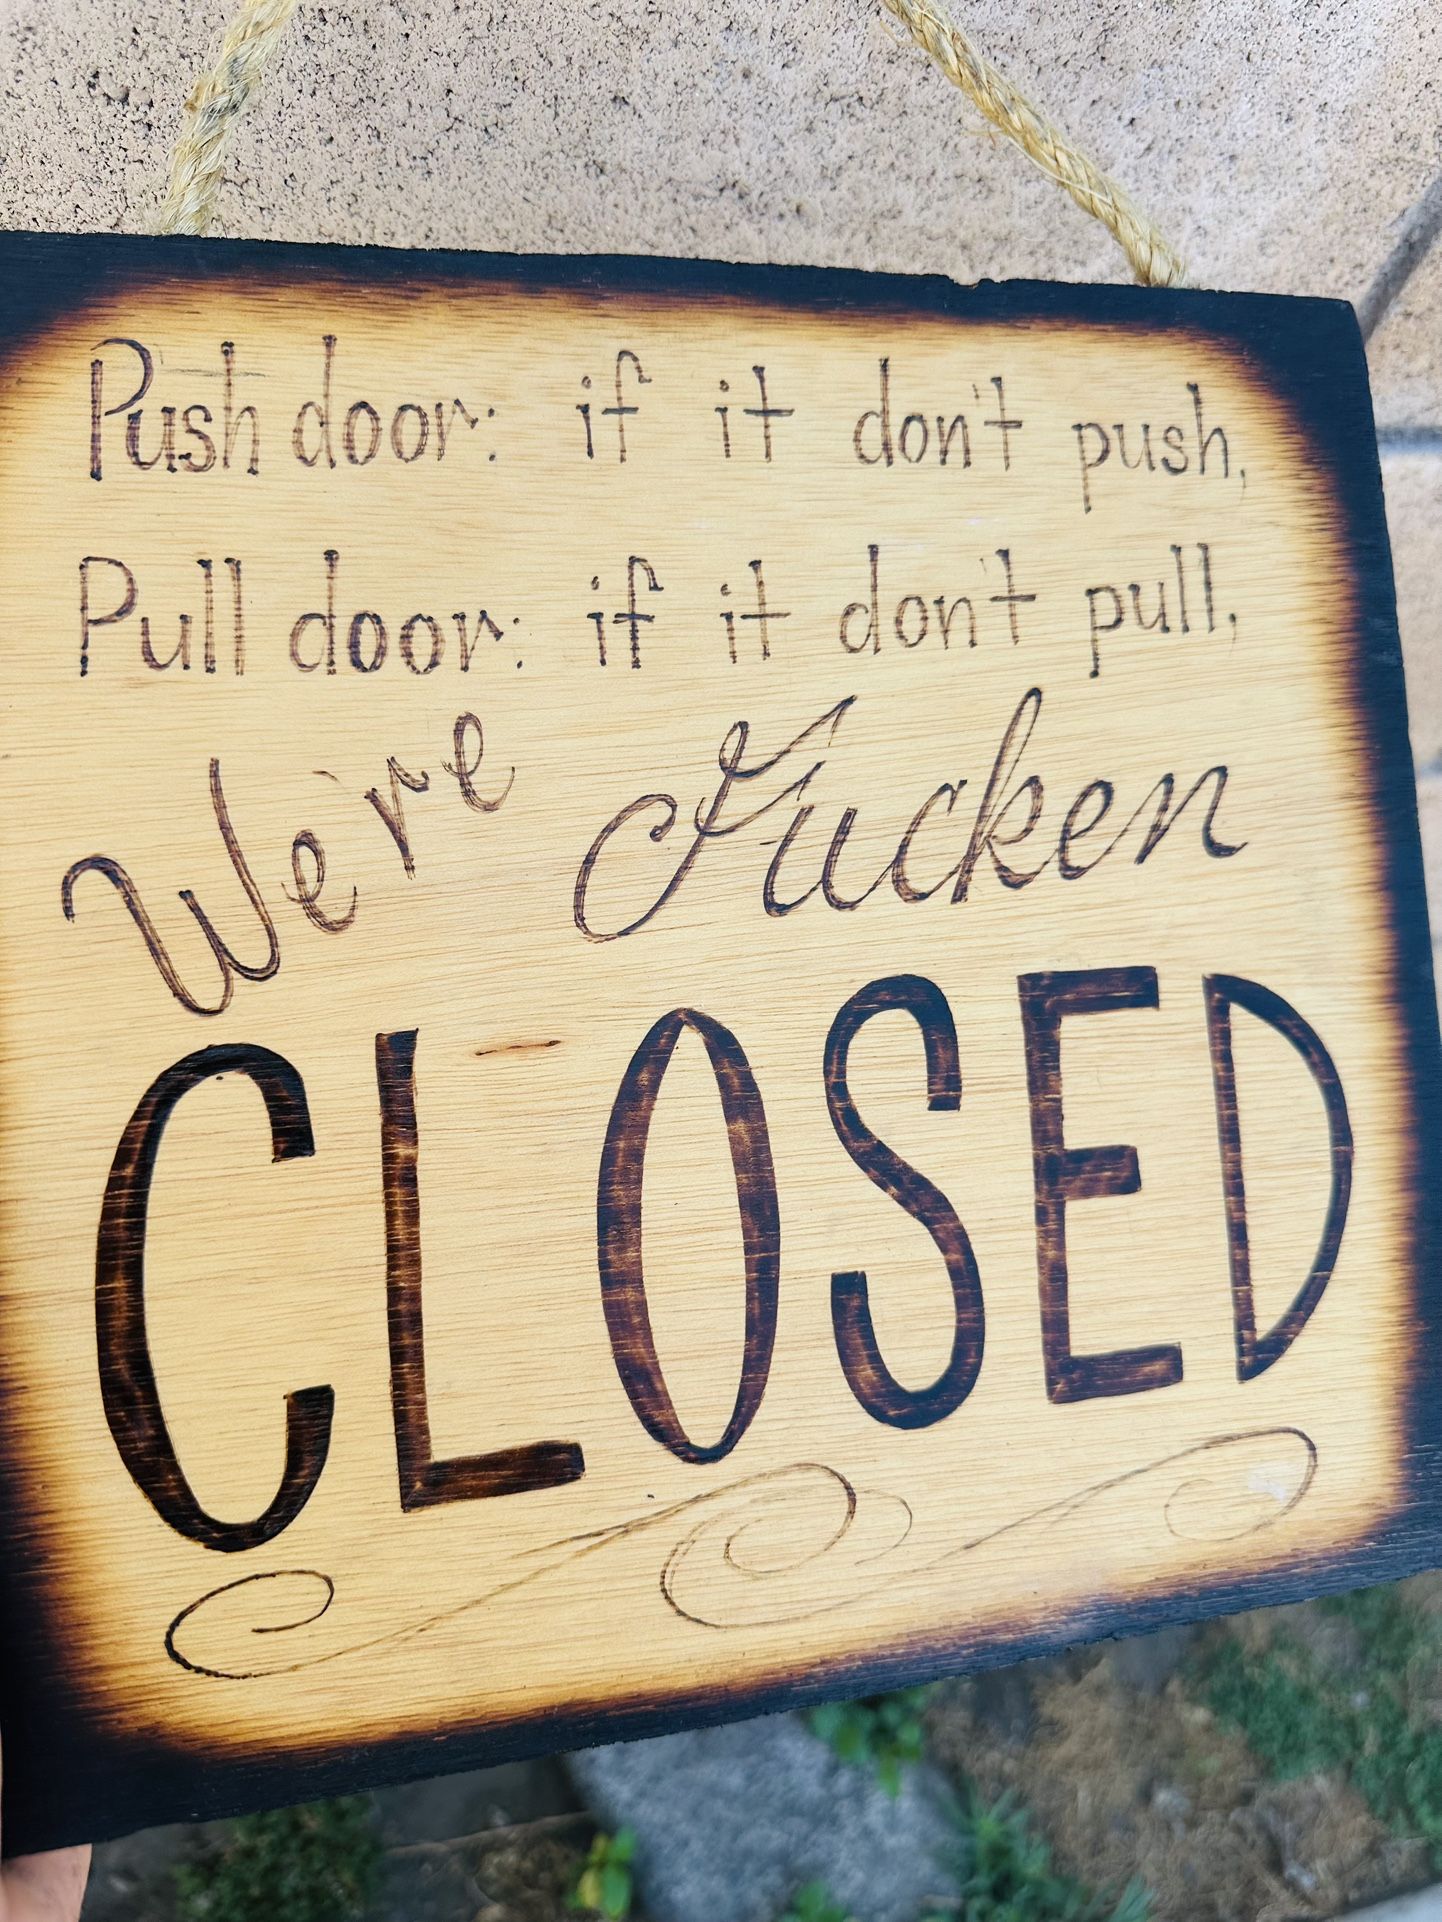 Push door: if it don't push,
Pull door: if it don't pull,
We're Fucken
CLOSED